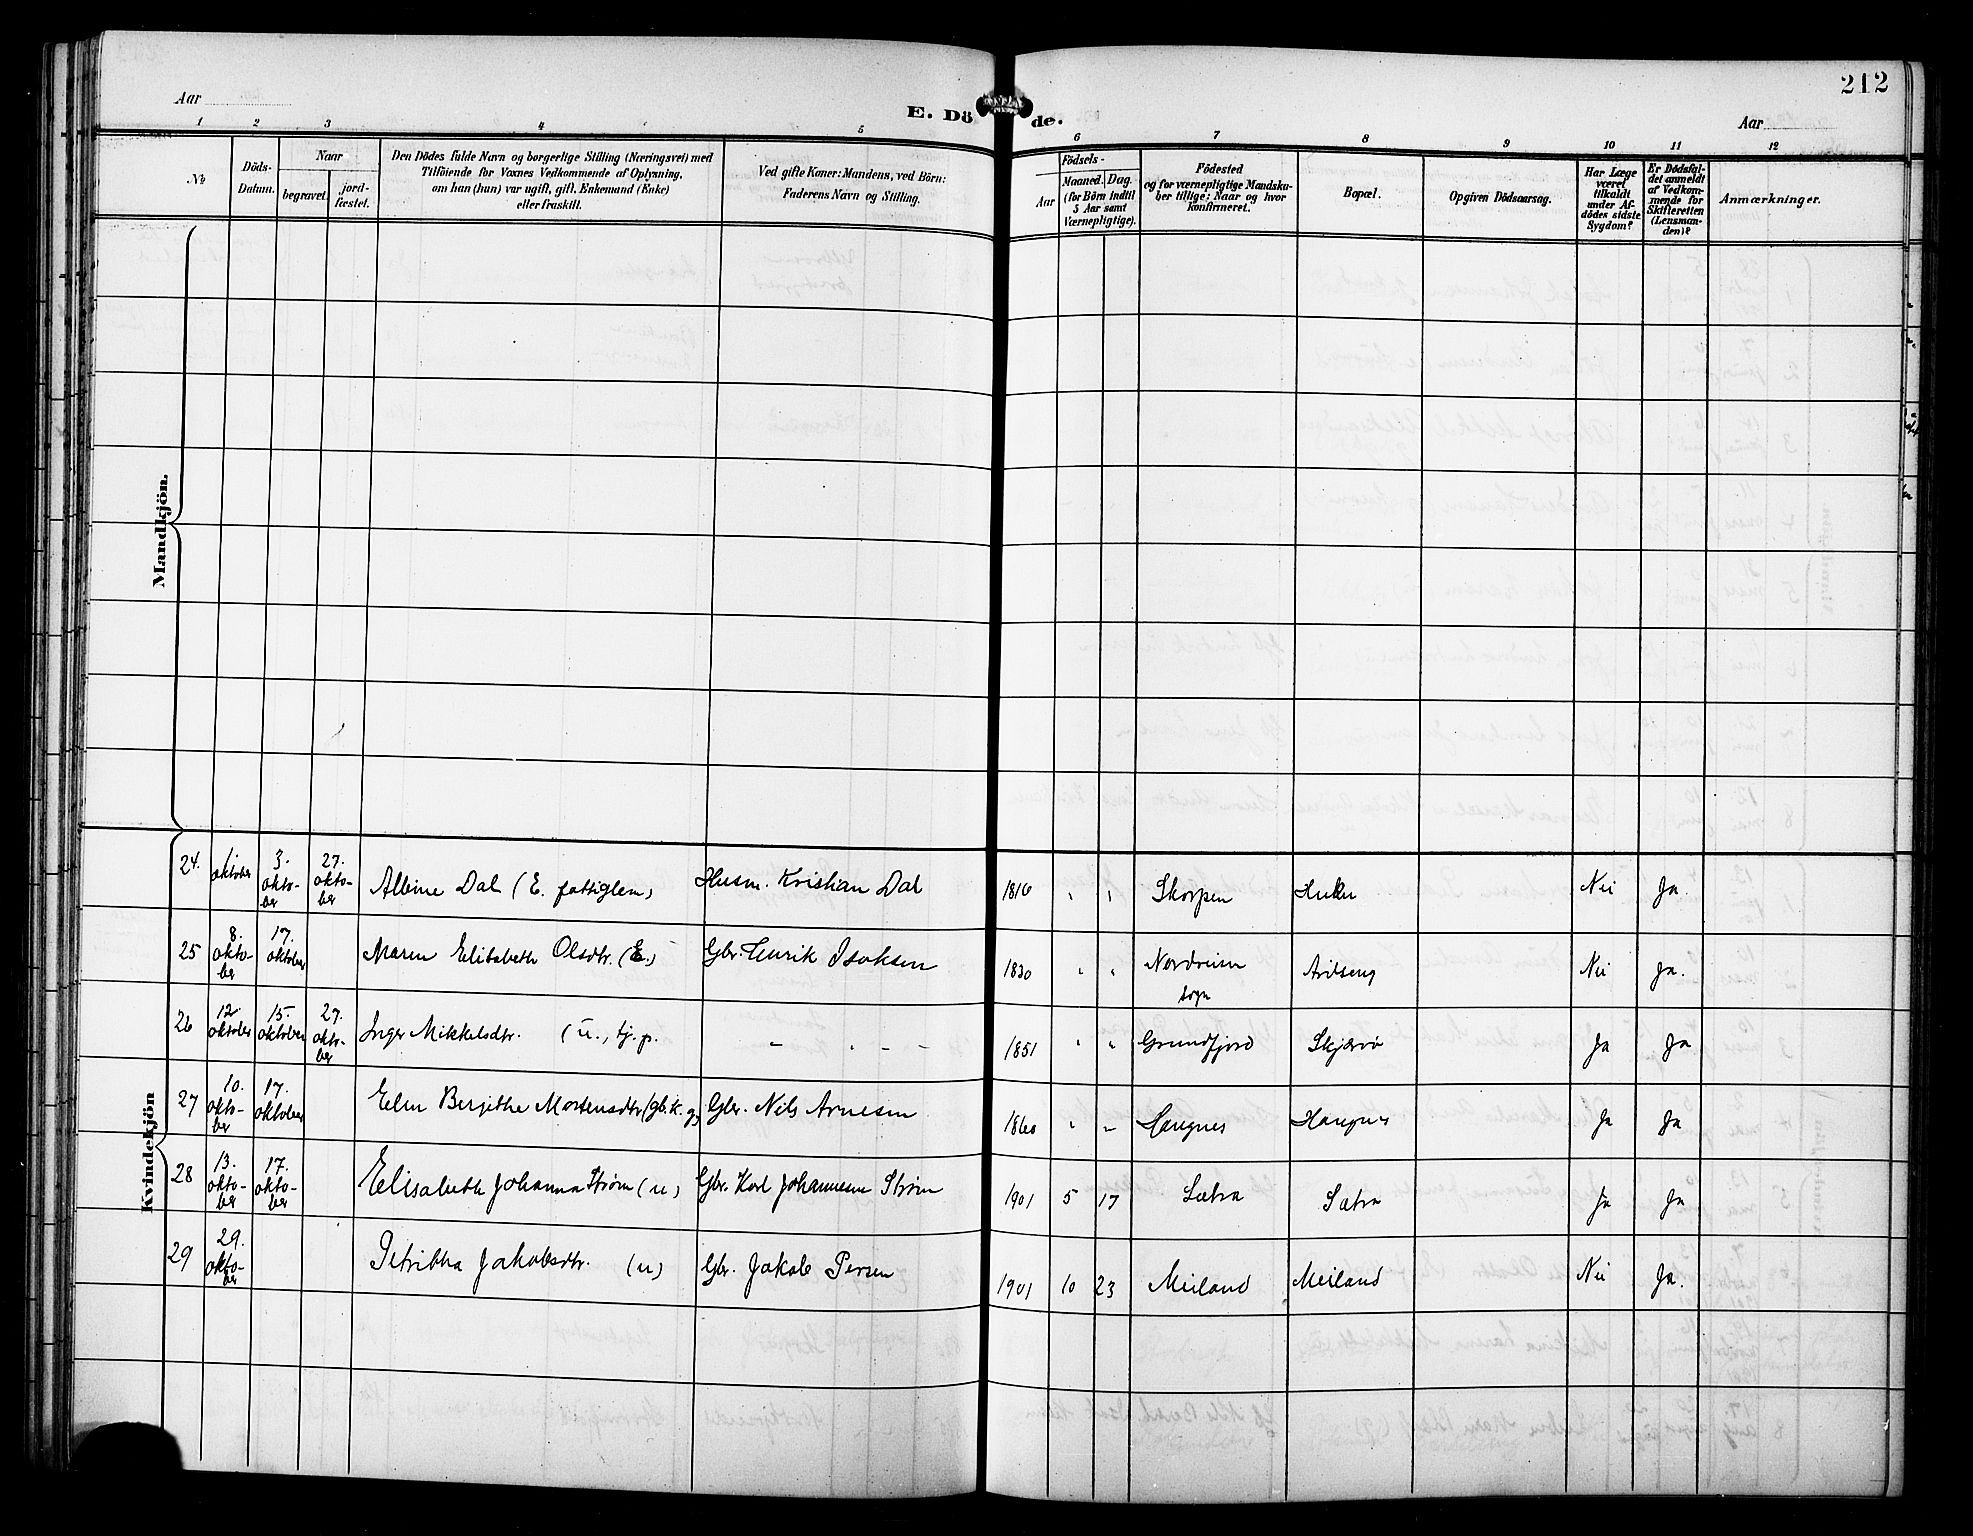 212
Aar
E. Dö de.
Aar
1 2 3 4 5 6 7 8 9 10 11 12
No
Döds-
Datum.
Naar
begravet.
jord-
fæstet.
Den Dödes fulde Navn og borgerlige Stilling (Næringsvei) med
Tilföiende for Voxnes Vedkommende af Oplysning,
om han (hun) var ugift, gift, Enkemand (Enke)
eller fraskilt.
Ved gifte Koner: Mandens, ved Börn:
Faderens Navn og Stilling.
Födsels-
Aar
Maaned. Dag.
(for Börn indtil
5 Aar samt
Værnepligtige).
Födested
og for værnepligtige Mandska-
ber tillige: Naar og hvor
konfirmeret.
Bopæl.
Opgiven Dödsaarsag.
Har Læge
været
tilkaldt
under Af-
dödes sidste
Sygdom?
Er Dödsfal-
det anmeldt
af Vedkom-
mende for
Skifteretten
(Lensman-
den)?
Anmærkninger.
Mandkjön.
Kvindekjön
24. 1. oktober 3. okto-ber 27. okto-ber Albine Dal (E. fattiglem) Husm. Kristian Dal 1816 Skorpen Nei Ja.
25 8. okto-ber 17. oktober Maren Elisabeth Olsdtr. (E.) Gbr. Henrik Isaksen 1830 Nordreisen sogn Nei Ja.
26 12. oktober 15. oktober 27. okto-ber Inger Mikkelsdtr. (u., tj. p. 1851 Grundfjord Skjærvö Ja Ja
27 10. okto-ber 17. oktober Elen Bergithe Mortensdtr (gb. k. g) Gbr. Nils Arnesen 1860 Haugnes Haugnes Ja Ja
28 13. okto-ber 17. okto-ber Elisabeth Johanna Strøm (u) Gbr. Karl Johannesen Strøm 1901 5 17 Sætra Sætra Ja Ja
29 29. okto-ber Petrikka Jakobsdtr. (u) Gbr. Jakob Persen 1901 10 23 Meiland Meiland Nei Ja.